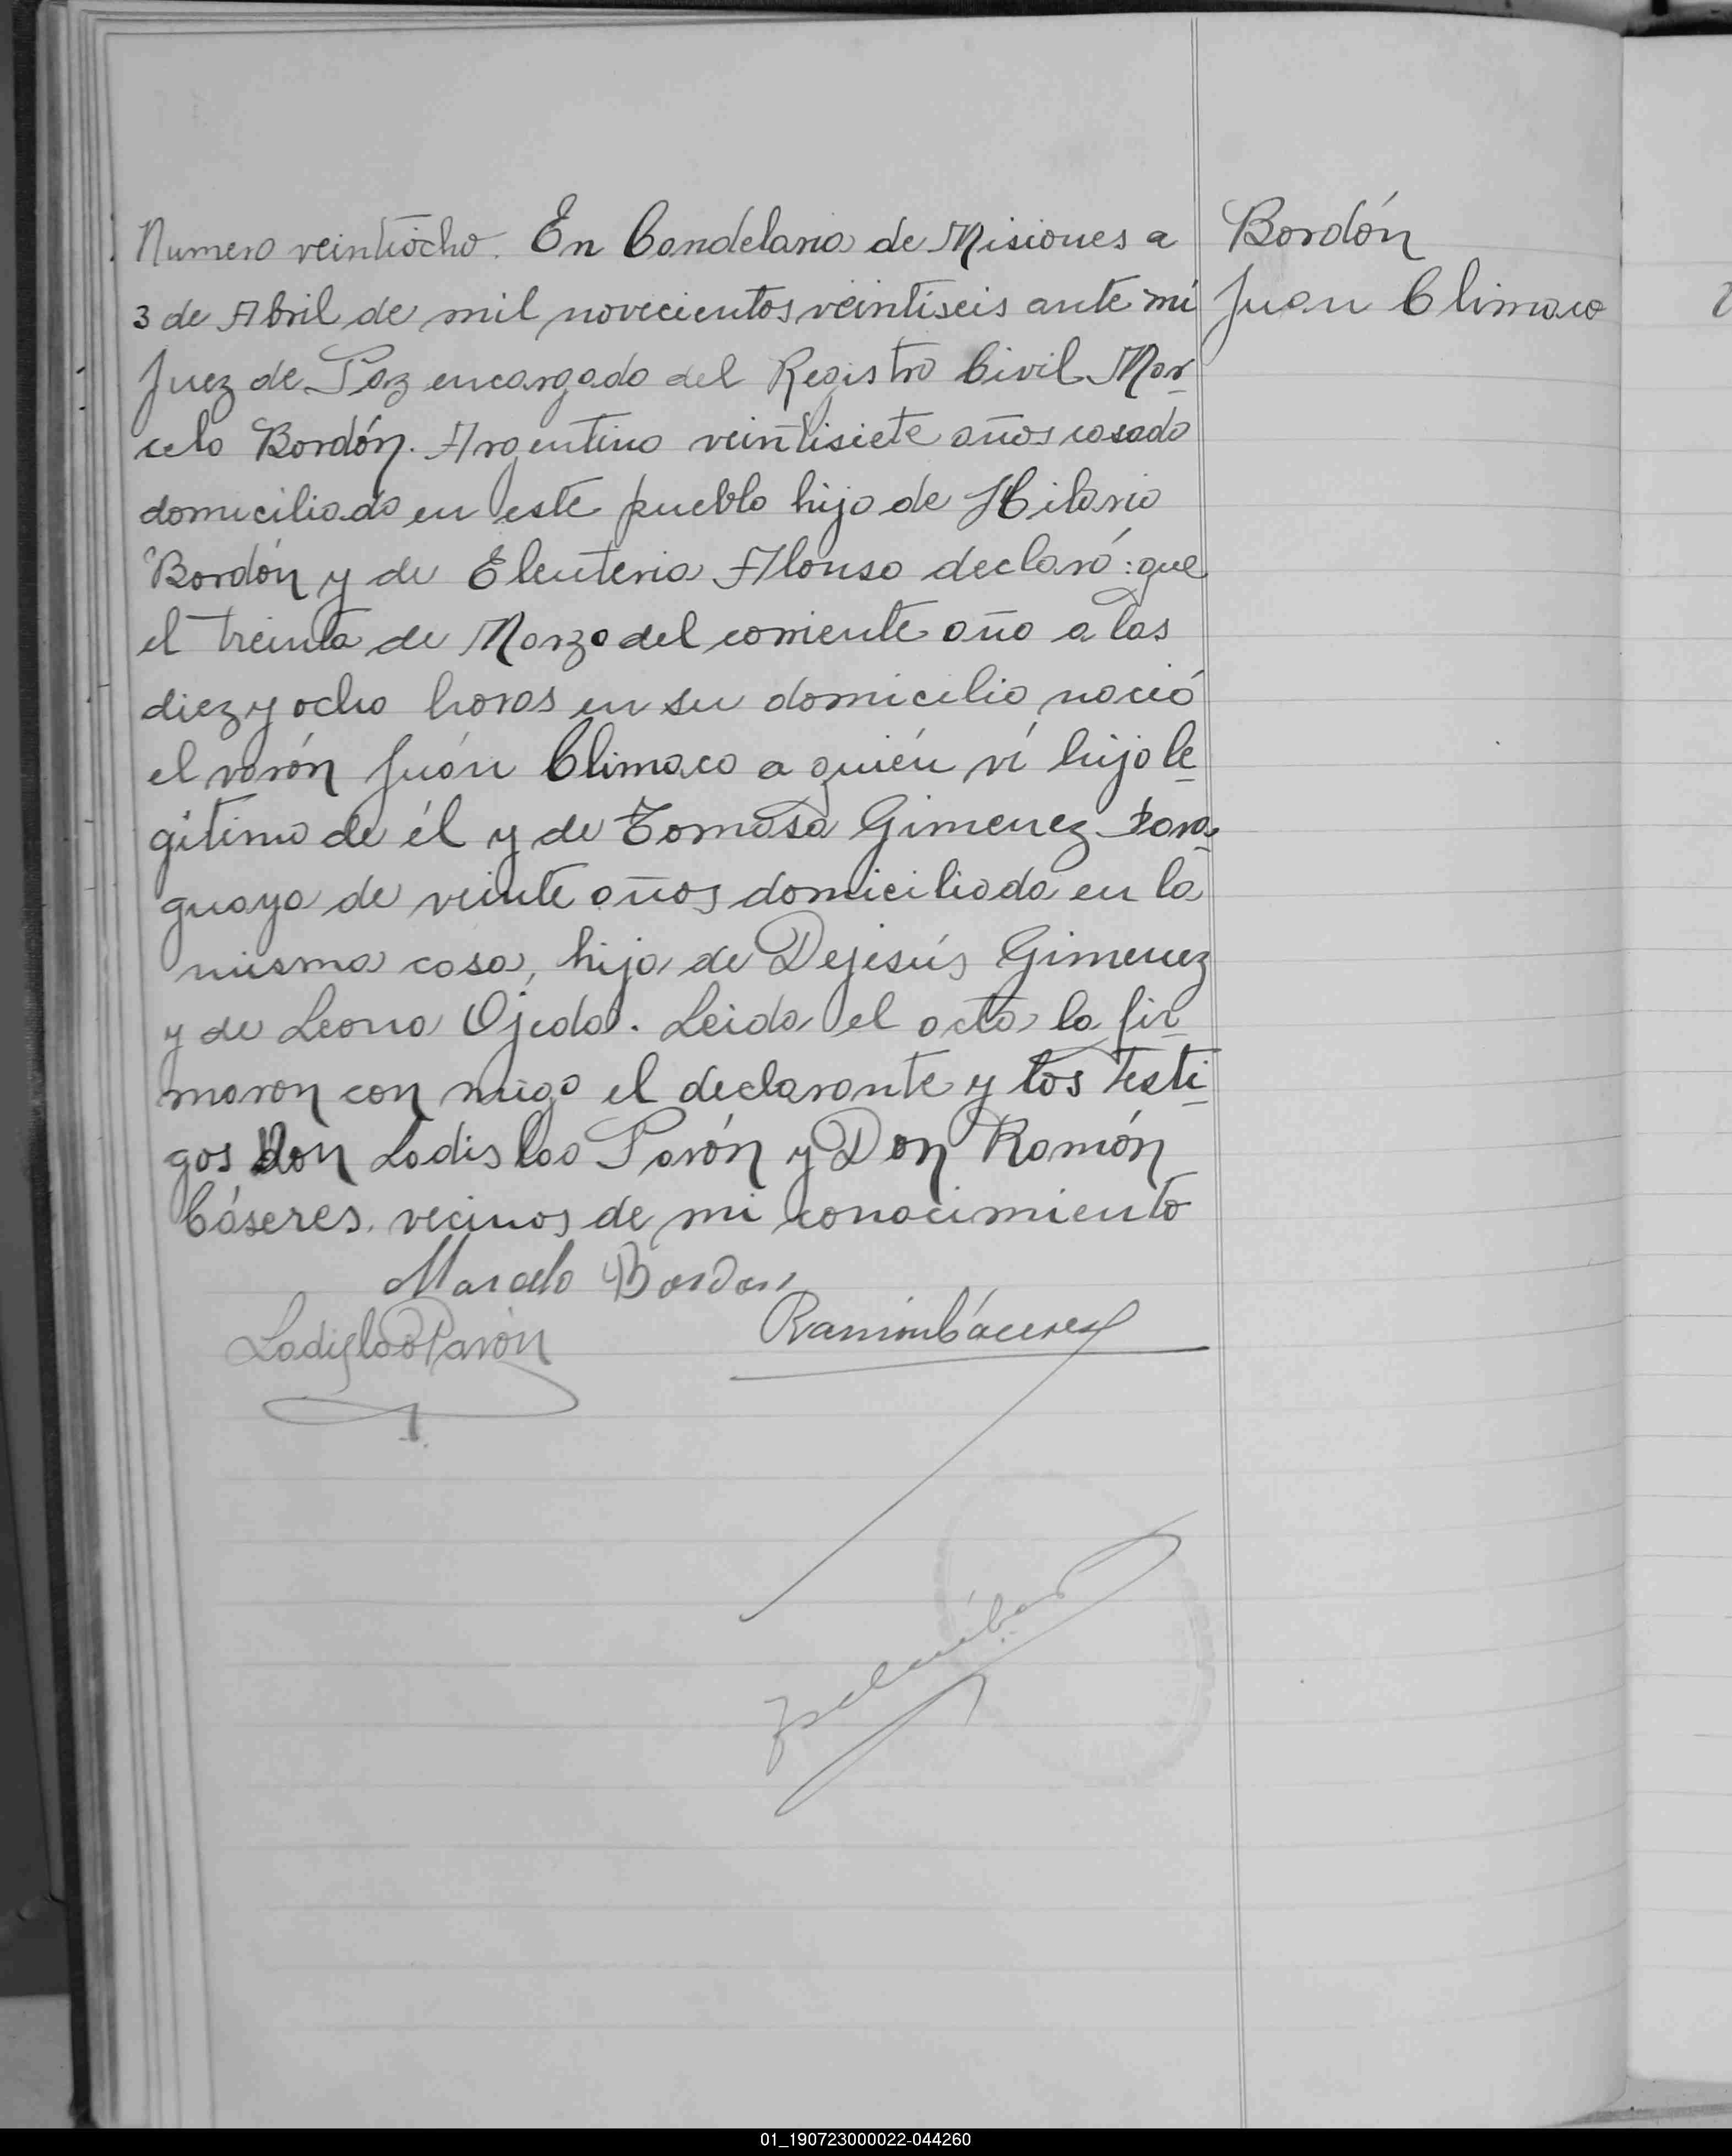 Numero veintiocho. En Candelaria de Misiones a
3 de Abril de mil novecientos veintiseis ante mi
Juez de Paz encargado del Registro Civil Mar-
celo Bordón. Argentino veintisiete años casado
domiciliado en este pueblo hijo de Hilario
Bordón y de Eleuteria Alonso declaró: que
el treinta de Marzo del corriente año a las
diez y ocho horas en su domicilio nació
el varón Juán Climaco a quién ví hijo le-
gitimo de él y de Tomasa Gimenez para-
guaya de veinte años domiciliada en la
misma casa, hija de Dejesús Gimenez
y de Leona Ojeda. Leida el acta la fir-
maron con migo el declarante y los testi-
gos Don Ladislao Pavón y Don Ramón
Cáseres. vecinos de mi conocimiento
Marcelo Bordon
Ladislao Pavón
Ramón Cáceres
Bordón
Juan Climaco
01_190723000022-044260